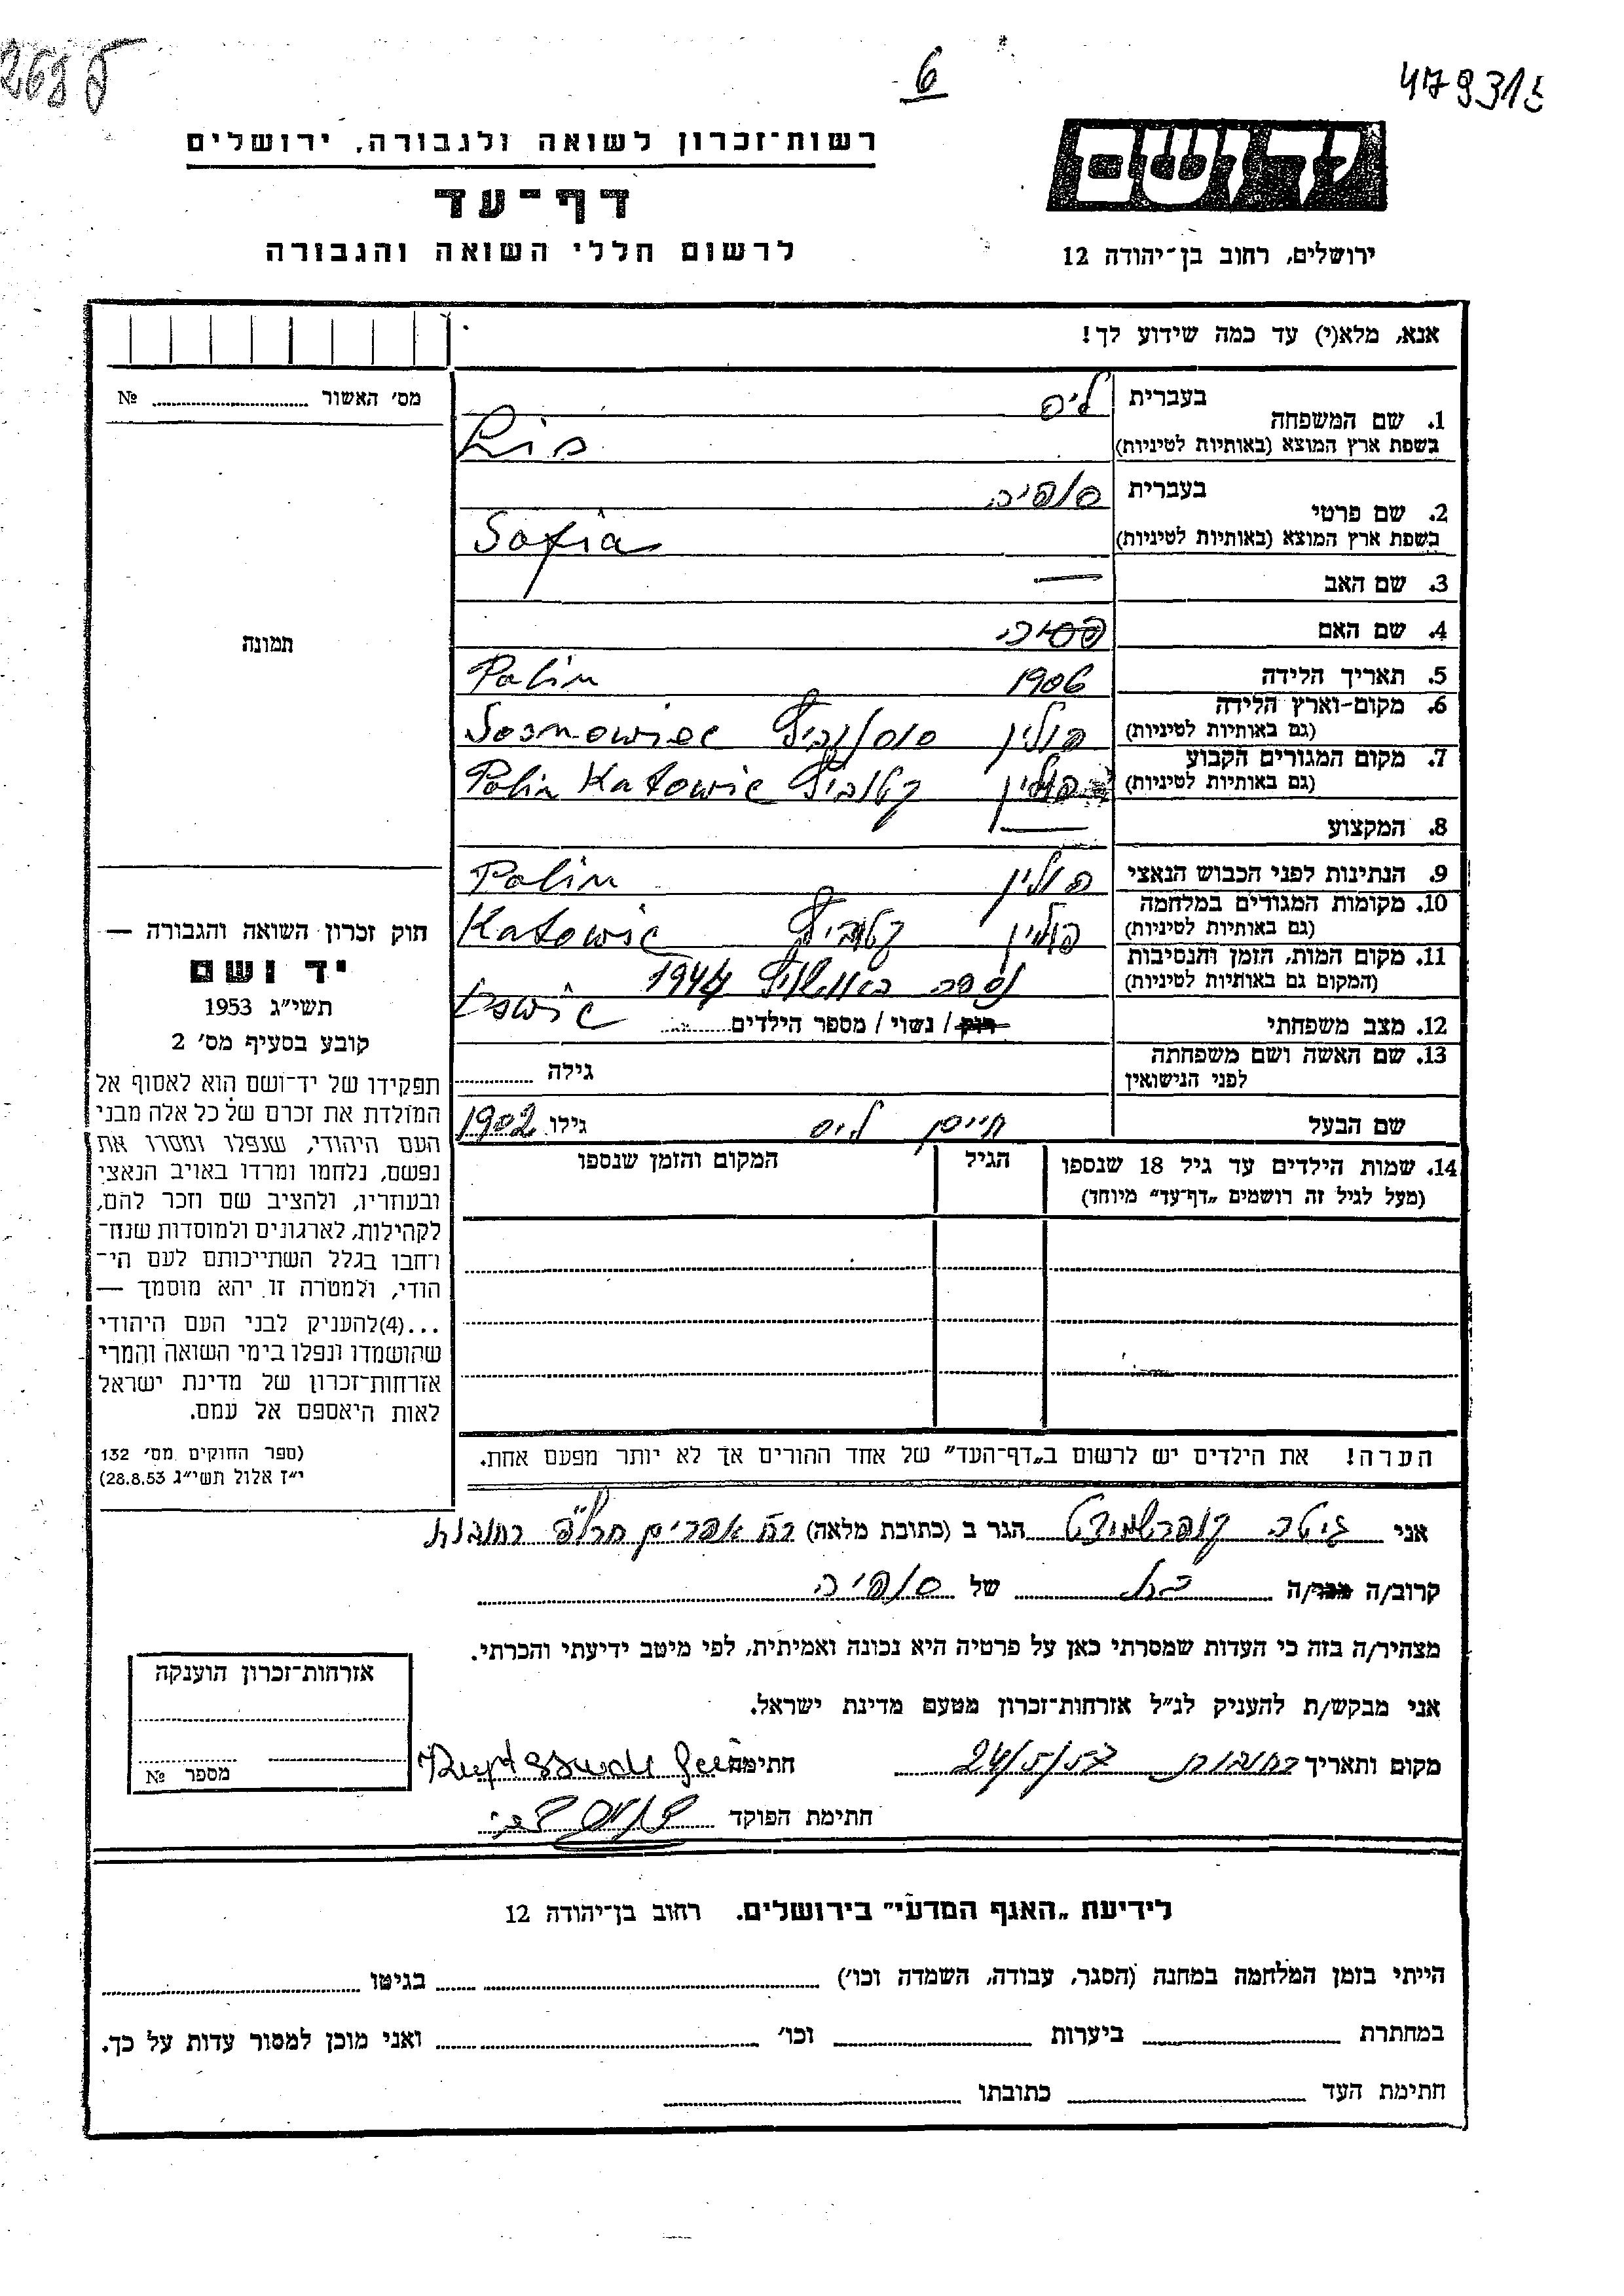 6
יד ושם
רשות־זכרון לשואה ולגבורה, ירושלים
דף־עד
לרשום חללי השואה והגבורה
ירושלים, רחוב בן־יהודה 12
אנא, מלא(י) עד כמה שידוע לך!
מס׳ האשור № 
1. שם המשפחה
בעברית ליס
בשפת ארץ המוצא (באותיות לטיניות) Lis
2. שם פרטי
בעברית סופיה
בשפת ארץ המוצא (באותיות לטיניות) Sofia
3. שם האב —
4. שם האם
5. תאריך הלידה 1906 Polin
6. מקום-וארץ הלידה
(גם באותיות לטיניות) פולין סוסנוביץ Sosnowiec
7. מקום המגורים הקבוע
(גם באותיות לטיניות) פולין קטוביץ Polin Katowic
8. המקצוע —
9. הנתינות לפני הכבוש הנאצי פולין Polin
10. מקומות המגורים במלחמה
(גם באותיות לטיניות) פולין קטוביץ Katowic
11. מקום המות, הזמן והנסיבות
(המקום גם באותיות לטיניות) נספה באושוויץ 1944
12. מצב משפחתי רוק / נשוי / מספר הילדים
13. שם האשה ושם משפחתה
לפני הנישואין גילה
שם הבעל חיים ליס גילו 1902
14. שמות הילדים עד גיל 18 שנספו
(מעל לגיל זה רושמים „דף־עד” מיוחד)
הגיל
המקום והזמן שנספו
הערה! את הילדים יש לרשום ב„דף־העד” של אחד ההורים אך לא יותר מפעם אחת.
תמונה
חוק זכרון השואה והגבורה —
יד ושם
תשי״ג 1953
קובע בסעיף מס׳ 2
תפקידו של יד־ושם הוא לאסוף אל
המולדת את זכרם של כל אלה מבני
העם היהודי, שנפלו ומסרו את
נפשם, נלחמו ומרדו באויב הנאצי
ובעוזריו, ולהציב שם וזכר להם,
לקהילות, לארגונים ולמוסדות שנח־
רחבו בגלל השתייכותם לעם הי־
הודי, ולמטרה זו יהא מוסמך —
...(4)להעניק לבני העם היהודי
שהושמדו ונפלו בימי השואה והמרי
אזרחות־זכרון של מדינת ישראל
לאות היאספם אל עמם.
(ספר החוקים מס׳ 132
י״ז אלול תשי״ג 28.8.53)
אני גיטה קופרשמידט הגר ב (כתובת מלאה) רח אפרים רחובות
קרוב/ה מכר/ה של סופיה
מצהיר/ה בזה כי העדות שמסרתי כאן על פרטיה היא נכונה ואמיתית, לפי מיטב ידיעתי והכרתי.
אני מבקש/ת להעניק לנ״ל אזרחות־זכרון מטעם מדינת ישראל.
מקום ותאריך רחובות 24/5/57 חתימה
חתימת הפוקד
אזרחות־זכרון הוענקה
מספר №
לידיעת „האגף המדעי” בירושלים. רחוב בן־יהודה 12
הייתי בזמן המלחמה במחנה (הסגר, עבודה, השמדה וכו׳) בגיטו
במחתרת ביערות וכו׳ ואני מוכן למסור עדות על כך.
חתימת העד כתובתו